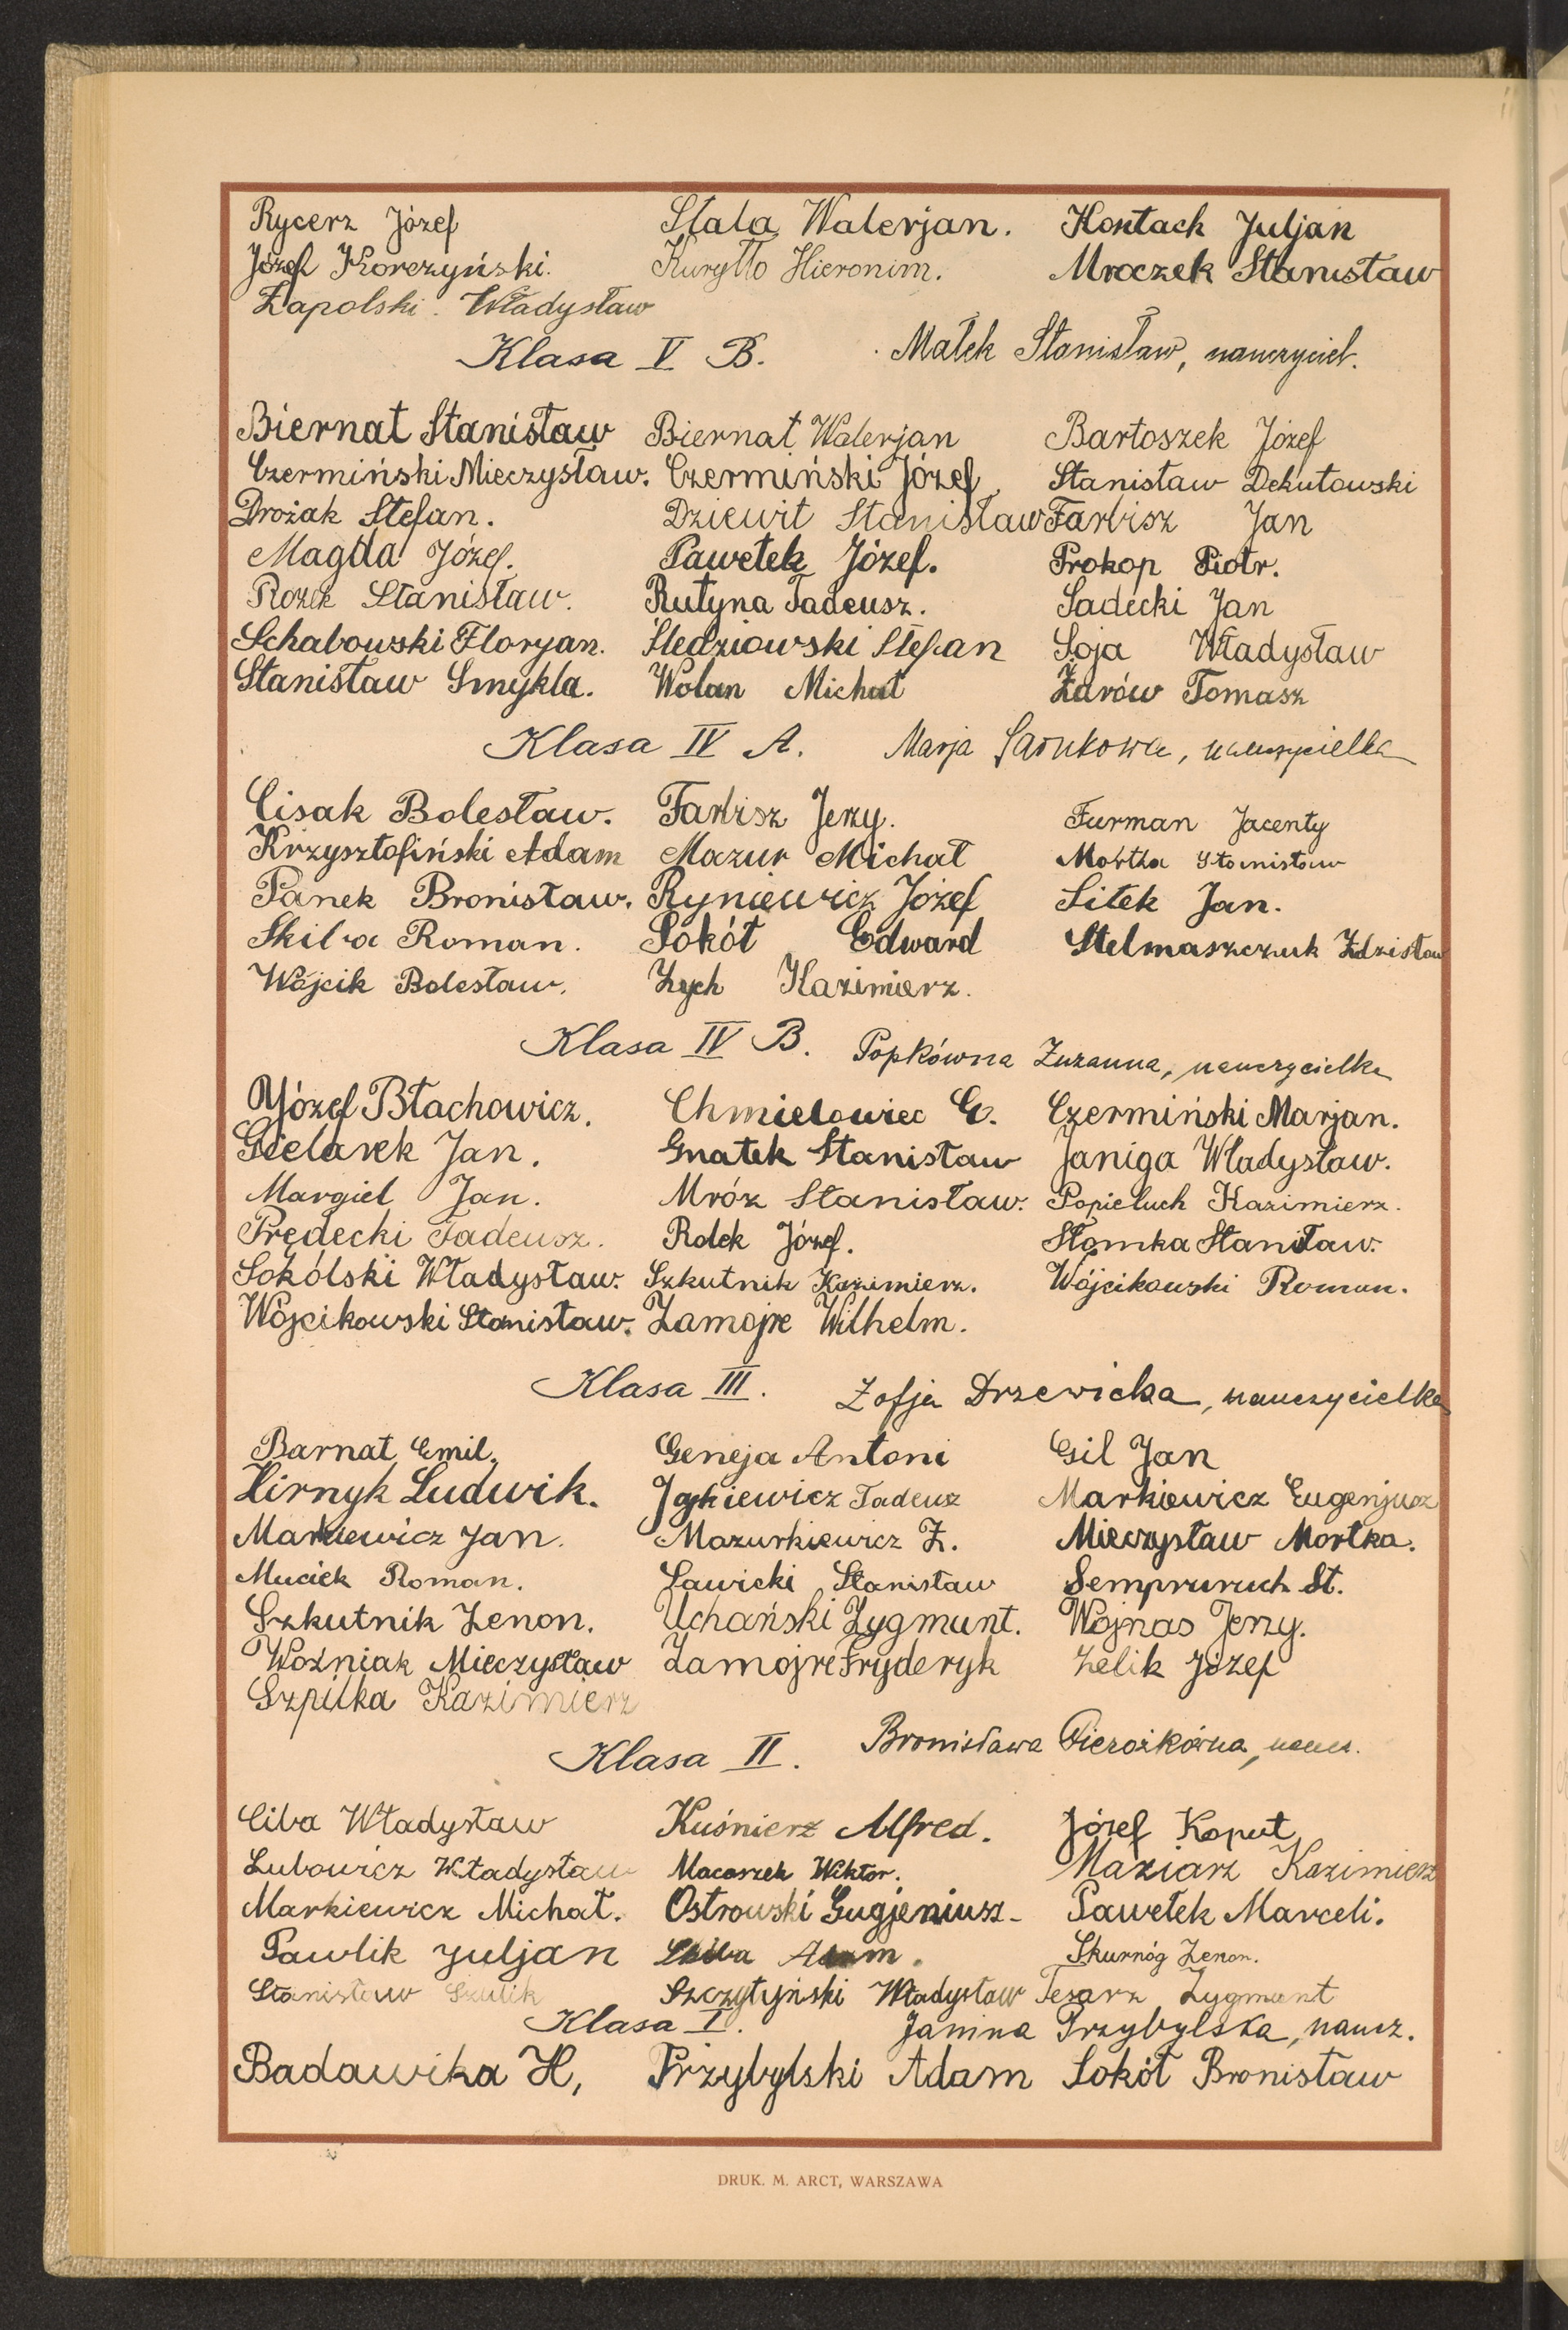 Rycerz Józef Stala Walerjan. Kontach Juljan
Józef Korczyński. Kuryłło Hieronim. Mroczek Stanisław
Zapolski. Władysław
Klasa V B. Małek Stanisław, nauczyciel.
Biernat Stanisław Biernat Walerjan Bartoszek Józef
Czermiński Mieczysław. Czermiński Józef Stanisław Dekutowski
Drożak Stefan. Dziewit Stanisław Farbisz Jan
Magda Józef. Pawełek Józef. Prokop Piotr.
Rożek Stanisław. Rutyna Tadeusz. Sadecki Jan
Schabowski Florjan. Śledziowski Stefan Soja Władysław
Stanisław Smykla. Wolan Michał Żarów Tomasz
Klasa IV A. Marja nauczycielka
Cisak Bolesław. Farbisz Jerzy. Furman Jacenty
Krzysztofiński Adam Mazur Michał Mortka Stanisław
Panek Bronisław. Ryniewicz Józef Sitek Jan.
Skiba Roman. Sokół Edward Stelmaszczuk Zdzisław
Wójcik Bolesław. Zych Kazimierz.
Klasa IV B. Popkówna Zuzanna, nauczycielka
Józef Błachowicz. Chmielowiec E. Czermiński Marjan.
Gielarek Jan. Gnatek Stanisław Janiga Władysław.
Margiel Jan. Mróz Stanisław. Popieluch Kazimierz.
Prędecki Tadeusz. Rolek Józef. Słomka Stanisław.
Sokólski Władysław. Szkutnik Kazimierz. Wójcikowski Roman.
Wójcikowski Stanisław. Zamojre Wilhelm.
Klasa III. Zofja Drzewicka, nauczycielka
Barnat Emil. Geneja Antoni Gil Jan
Hirnyk Ludwik. Tadeusz Markiewicz Eugenjusz
Markiewicz Jan. Mazurkiewicz Z. Mieczysław Mortka.
Muciek Roman. Sawicki Stanisław Sempruruch St.
Szkutnik Zenon. Uchański Zygmunt. Wojnas Jerzy.
Woźniak Mieczysław Zamojre Fryderyk Zelik Józef
Szpilka Kazimierz
Klasa II. Bronisława Pierożkówna, naucz.
Ciba Władysław Kuśnierz Alfred. Józef Koput
Lubowicz Władysław Macoszek Wiktor. Maziarz Kazimierz
Markiewicz Michał. Ostrowski Eugjeniusz. Pawełek Marceli.
Pawlik Juljan Skiba Adam. Skurnóg Zenon.
Stanisław Szulik Szczytyński Władysław Tesarz Zygmunt
Klasa I. Janina Przybylska, naucz.
Badawika H, Przybylski Adam Sokół Bronisław
DRUK. M. ARCT, WARSZAWA